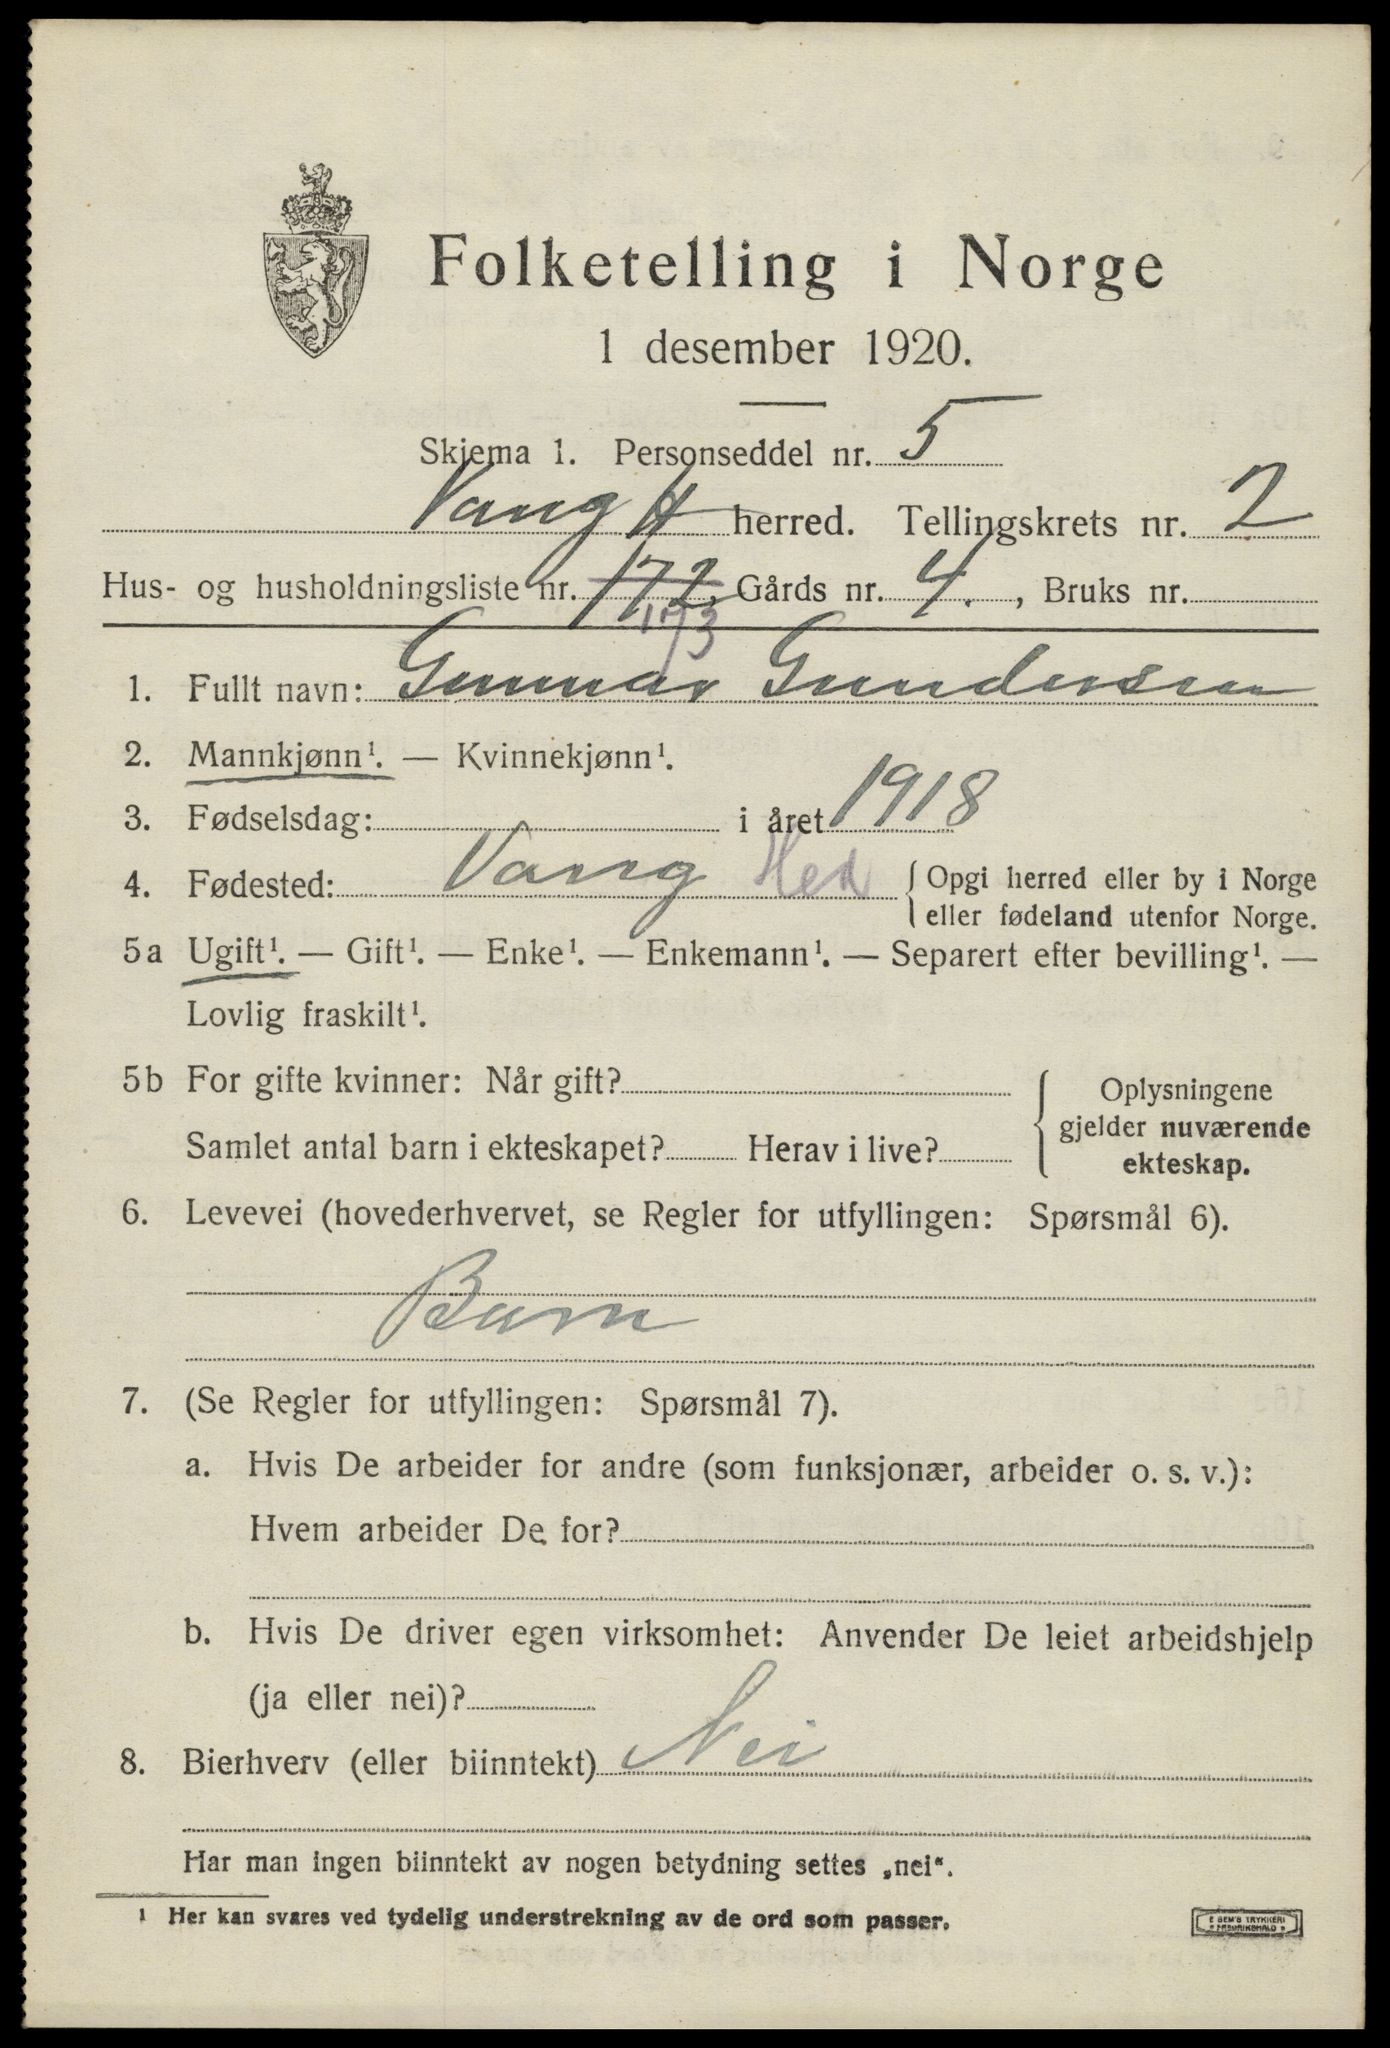 Folketelling i Norge
1 desember 1920.
Skjema 1. Personseddel nr. 5
Vang H herred. Tellingskrets nr. 2
Hus- og husholdningsliste nr. 172, Gårds nr. 4. , Bruks nr.
173
1. Fullt navn: Gunnar Gundersen
2. Mannkjønn¹. — Kvinnekjønn¹.
3. Fødselsdag: i året 1918
4. Fødested: Vang Hed { Opgi herred eller by i Norge
eller fødeland utenfor Norge.
5a Ugift¹. — Gift¹. — Enke¹. — Enkemann¹. — Separert efter bevilling¹. —
Lovlig fraskilt¹.
5b For gifte kvinner: Når gift?
Samlet antal barn i ekteskapet? Herav i live?
Oplysningene
gjelder nuværende
ekteskap.
6. Levevei (hovederhvervet, se Regler for utfyllingen: Spørsmål 6).
Barn
7. (Se Regler for utfyllingen: Spørsmål 7).
a. Hvis De arbeider for andre (som funksjonær, arbeider o. s. v.):
Hvem arbeider De for?
b. Hvis De driver egen virksomhet: Anvender De leiet arbeidshjelp
(ja eller nei)?
8. Bierhverv (eller biinntekt) Nei
Har man ingen biinntekt av nogen betydning settes „nei“.
¹ Her kan svares ved tydelig understrekning av de ord som passer.
E SEM'S TRYKKERI
FREDRIKSHALD